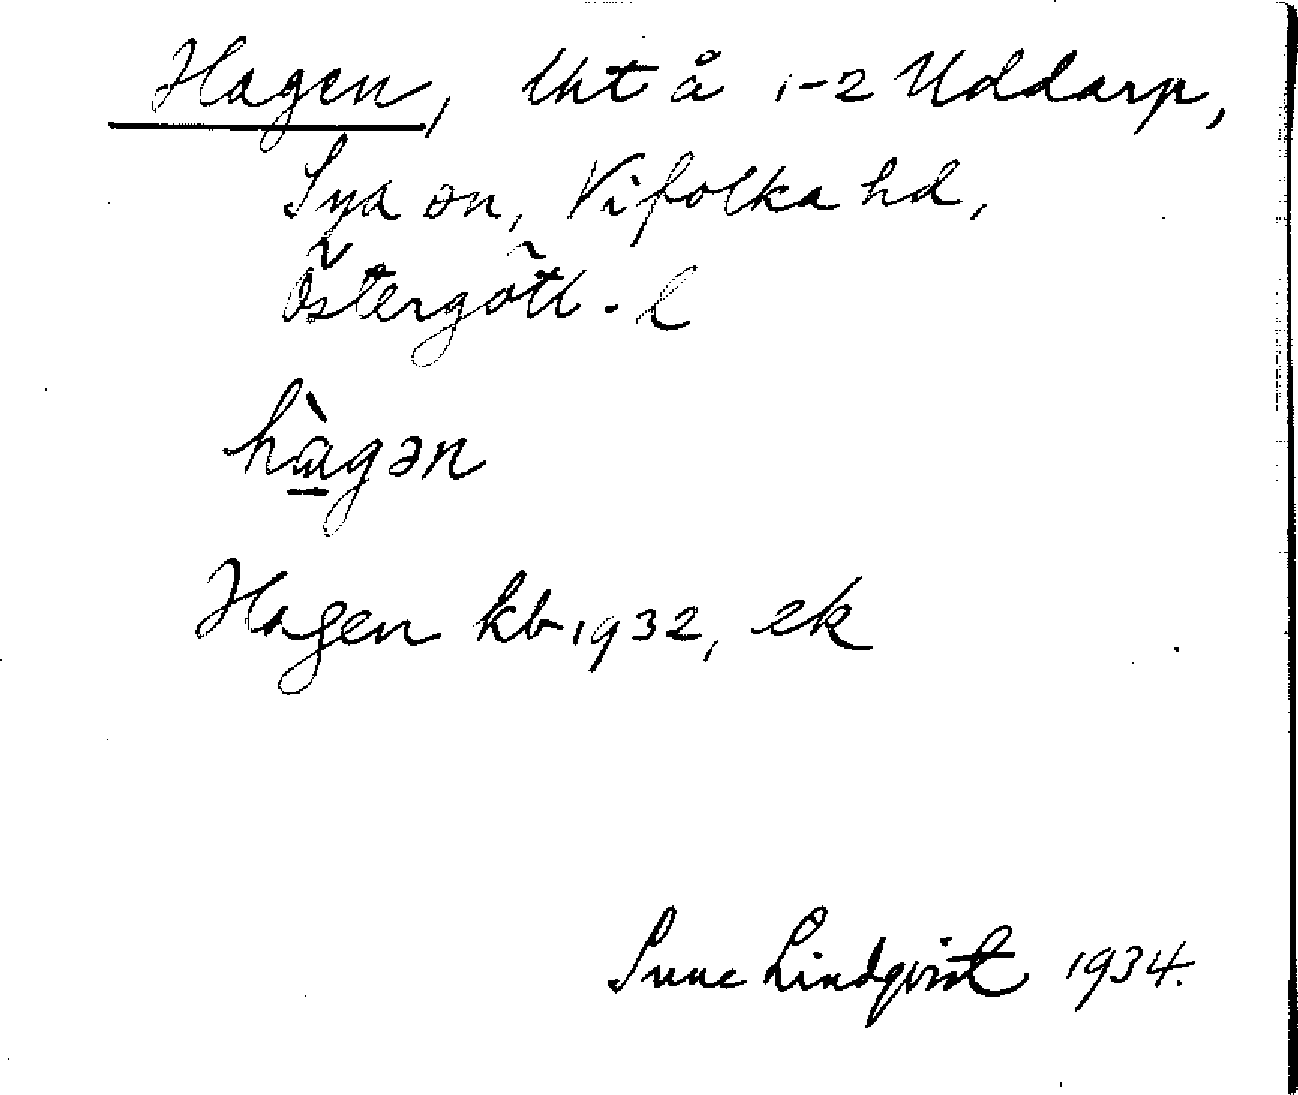 Hagen, lht å 1-2 Uddarp,
Sya sn, Vifolka hd,
Östergötl. l
hàgən
Hagen kb 1932, ek
Sune Lindqvist 1934.